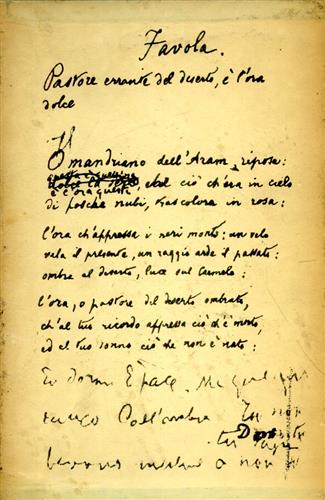 Favola.
Pastore errante del deserto, è l'ora
dolce
Il
O mandriano dell'Aram, riposa:
è l'ora questa
dolce la sera e ciò ch'era in cielo
di fosche nubi, trascolora in rosa:
l'ora ch'appressa i neri monti: un velo
vela il presente, un raggio arde il passato:
ombre al deserto, luce sul Carmelo:
l'ora, o pastore del deserto ombrato,
ch'al tuo ricordo appressa ciò ch'è morto,
ed al tuo sonno ciò che non è nato:
Tu dormi È pace.
Dall'ombra Tu non
tu
a non